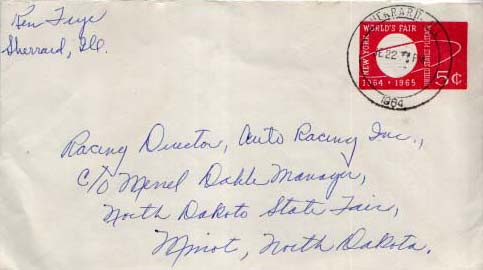 Ben Frye
Sherrard, Ill.
SHERRARD
22
1964
NEW YORK WORLD'S FAIR
1964 • 1965
UNITED STATES POSTAGE
5¢
Racing Director, Auto Racing Inc.,
c/o Merrel Dahle Manager,
North Dakota State Fair,
Minot, North Dakota.